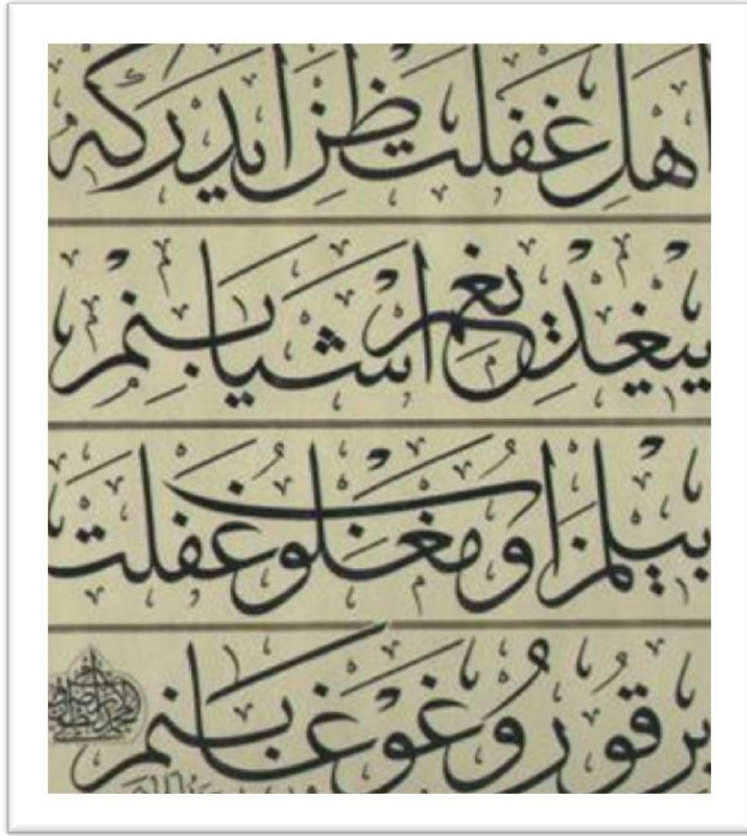 اهل غفلت ظن ايدر كه
ييغديغى هر اشيا بنم
بيلمز او مغلوب غفلت
بر قورو غوغا بنم